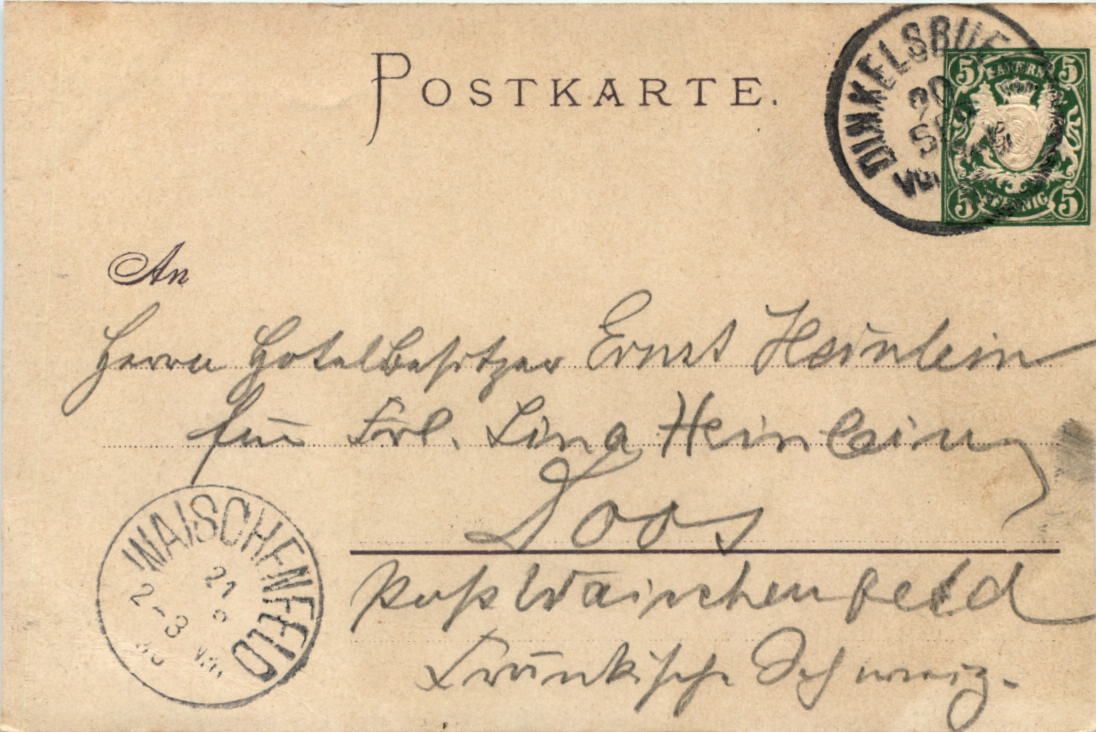 POSTKARTE.
DINKELSBUE
20
SE
5 BAYERN 5
5 PFENNIG 5
An
Herrn Hotelbesitzer Ernst Heinlein
für Frl. Lina Heinlein
Doos
Post Waischenfeld
Fränkische Schweiz.
WAISCHENFELD
21
2-3